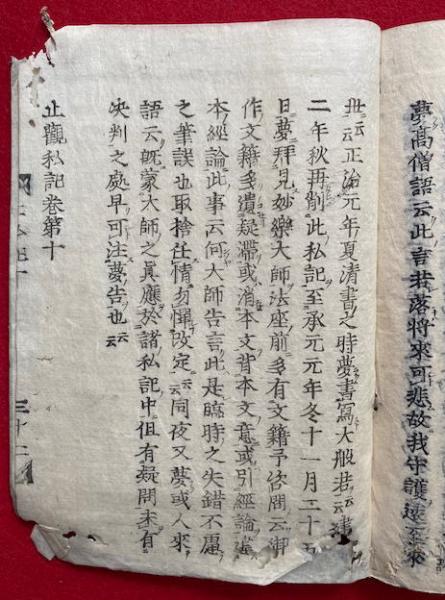 夢高僧語云此言若落將來可悲故我守護遂至來
世云云正治元年夏清書之時夢書寫大般若云云建
二年秋再削此私記至承元元年冬十一月二十五
日夢拜見妙樂大師法座前多有文籍予咨問云御
作文籍多遺疑滯或消本文背本文意或引經論違
本經論此事云何大師告言此是臨時之失錯不慮
之筆誤也取捨任情勿憚改定云云同夜又夢或人來
語云既蒙大師之眞應於諸私記中但有疑問未有
决判之處早可注夢告也云云
止觀私記卷第十